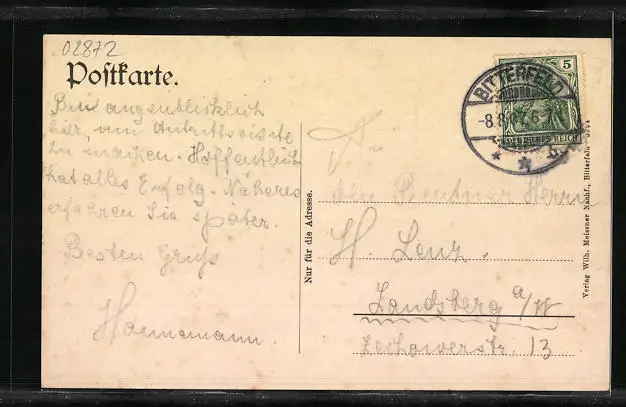 02872
Postkarte.
Bin augenblicklich
hier, um Antrittsvisite
zu machen. Hoffentlich
hat alles Erfolg. Näheres
erfahren Sie später.
Besten Gruß
Hannemann.
Nur für die Adresse.
BITTERFELD
-8.8.
5
DEUTSCHES REICH
den Rentner Herrn
H. Lenz.
Landsberg a/W
Zechowerstr. 13
Verlag Wilh. Meissner Nachf., Bitterfeld